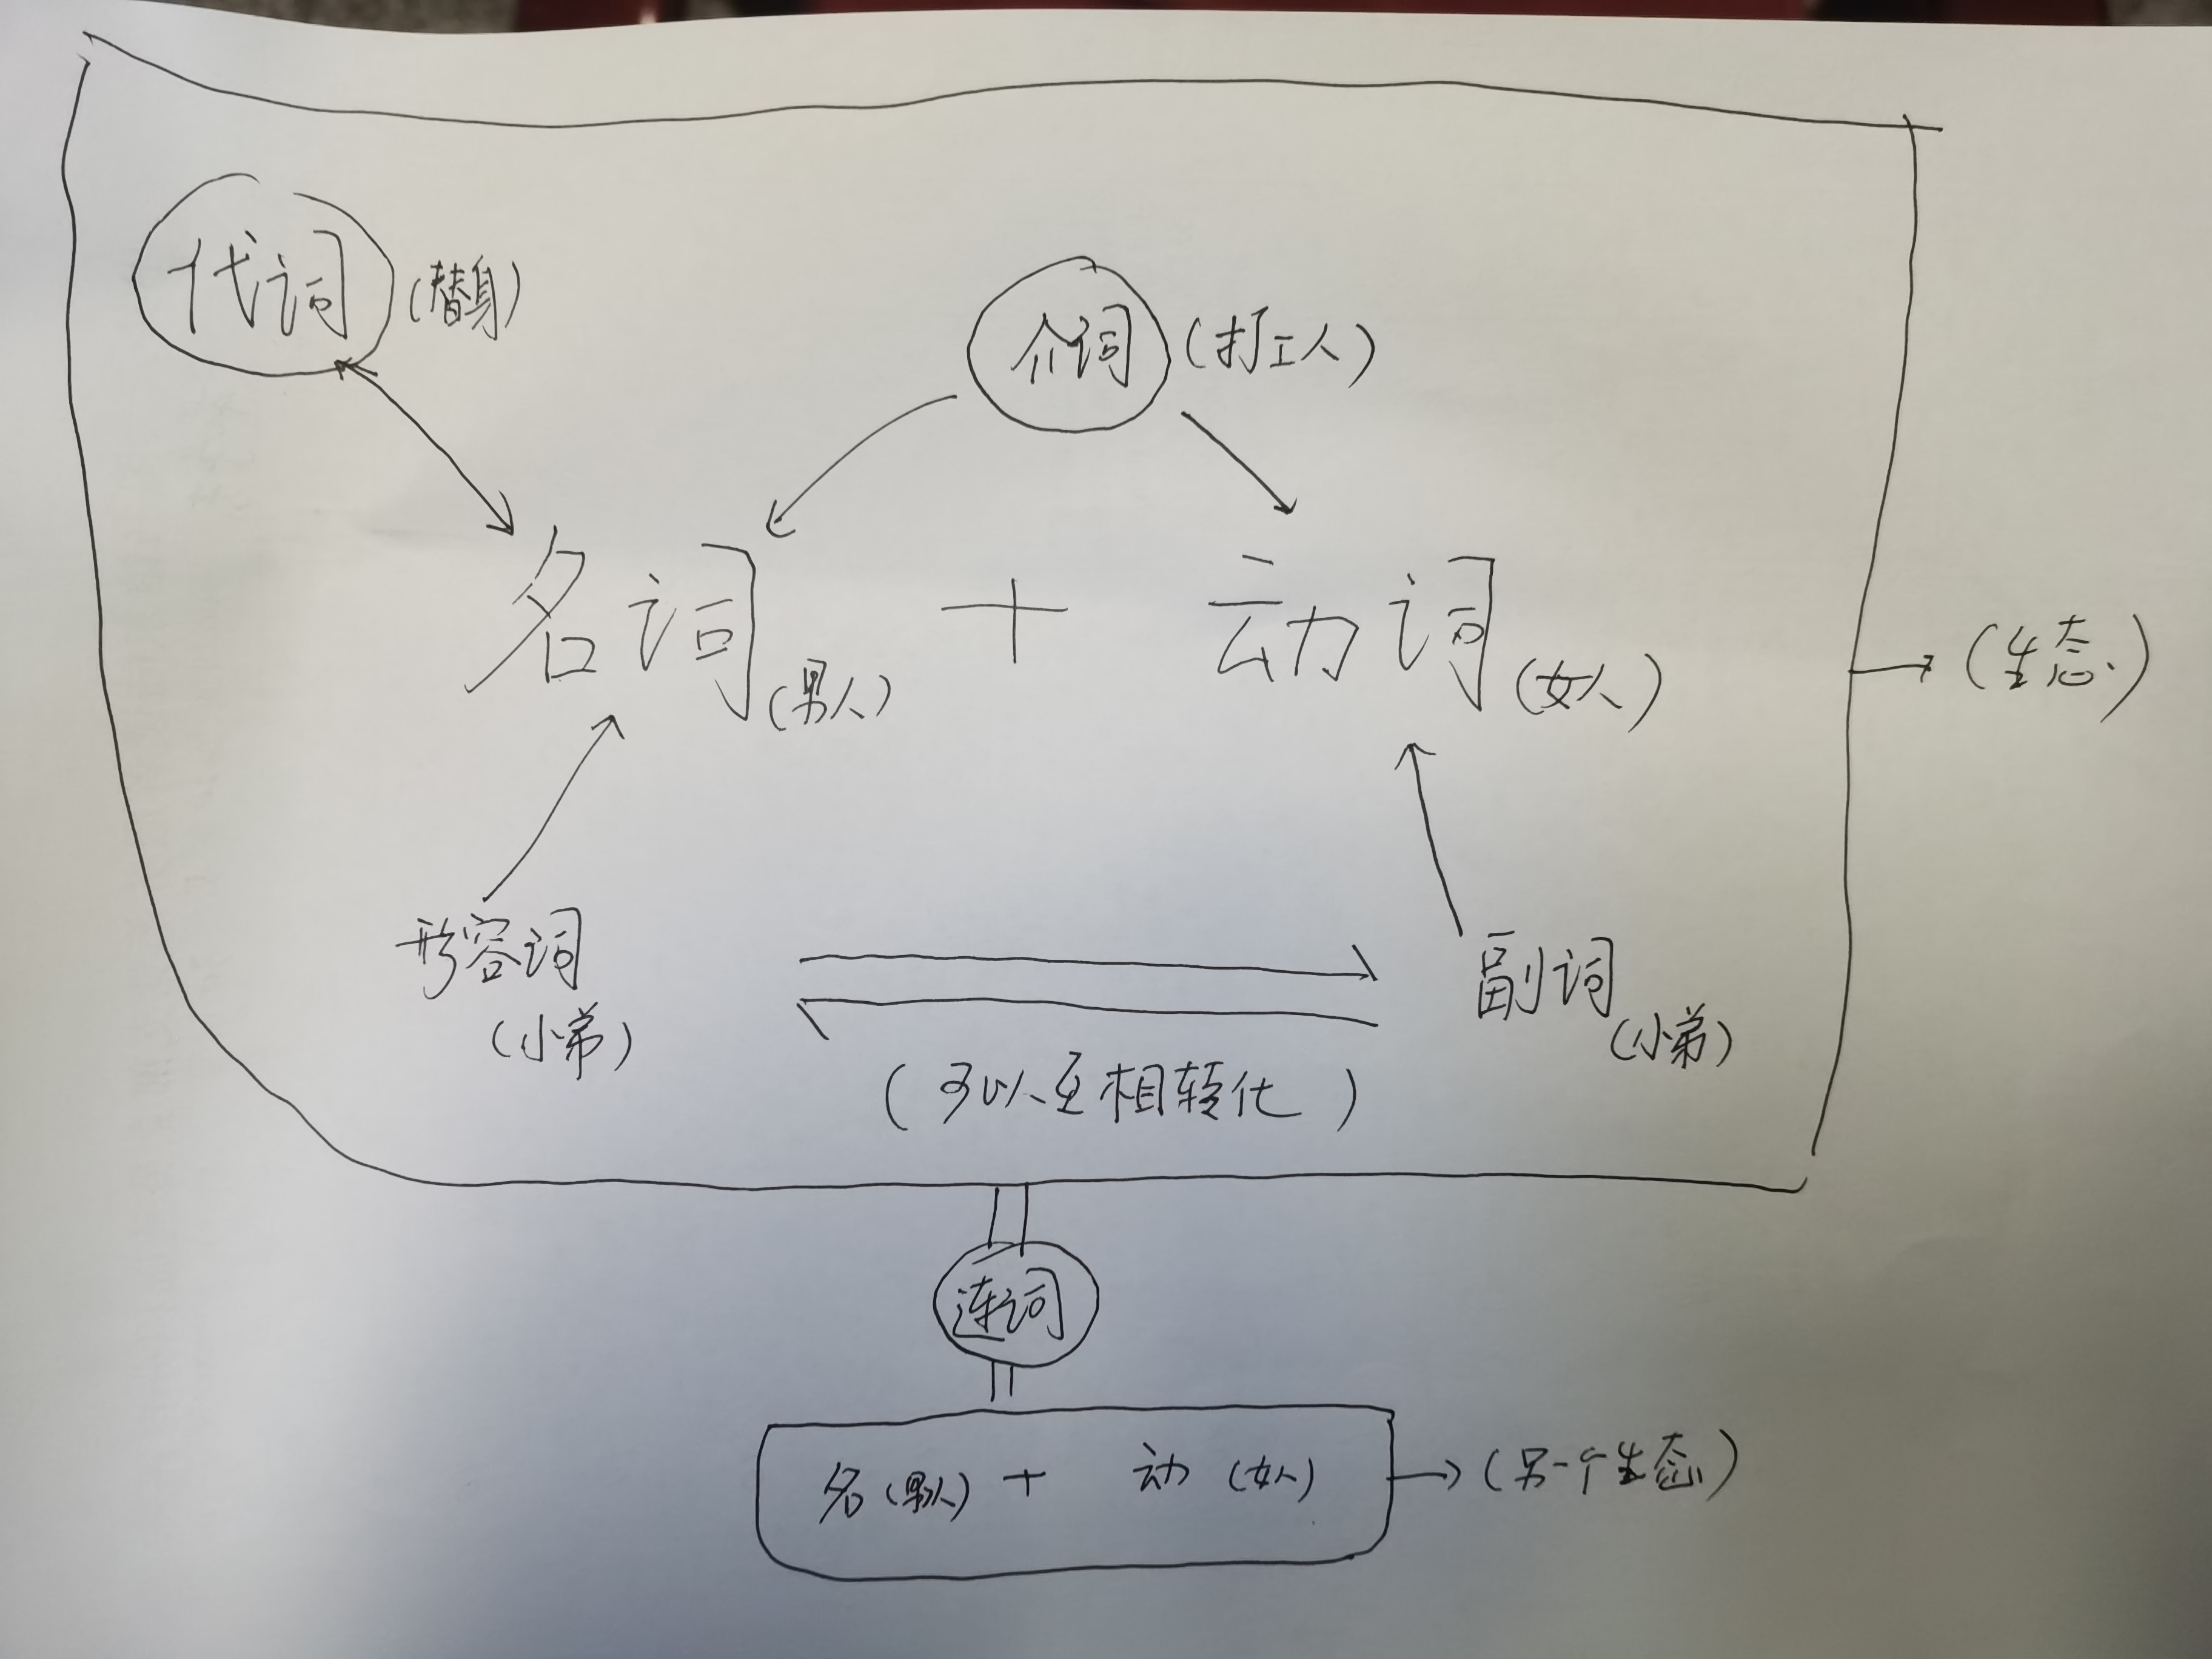 代词 (替身)
介词 (打工人)
名词 (男人) + 动词 (女人)
(生态)
形容词 (小弟)
副词 (小弟)
(可以互相转化)
连词
名 (男人) + 动 (女人)
(另一个生态)